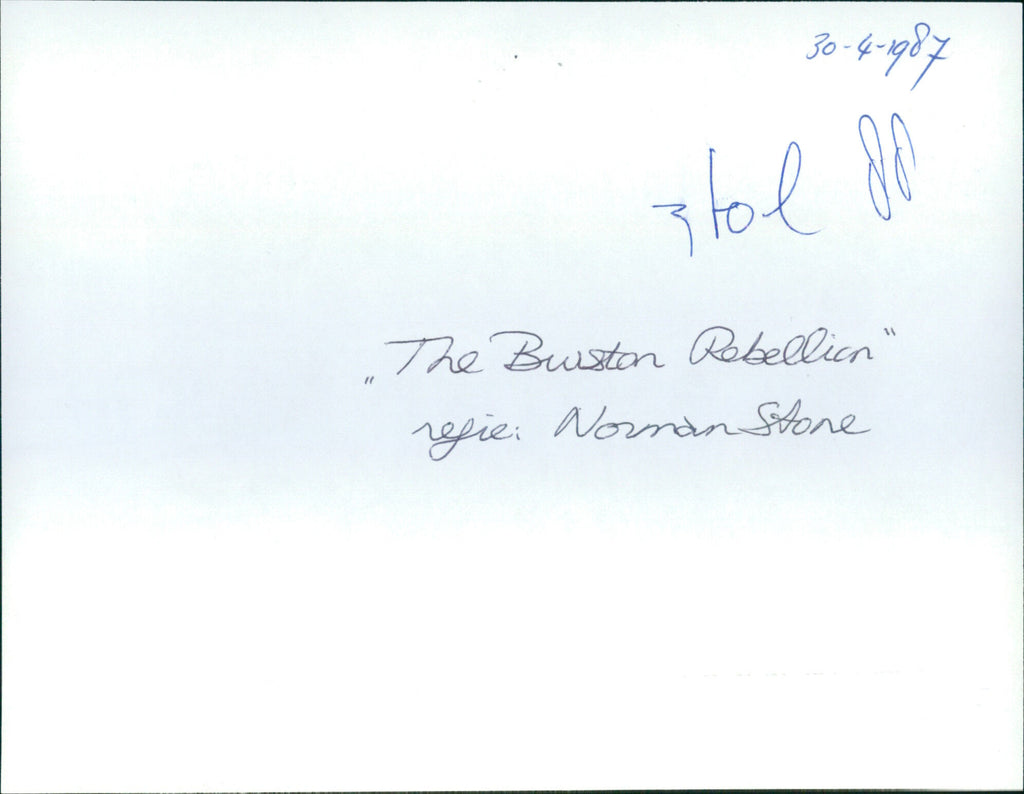 30-4-1987
„The Burston Rebellion“
regie: Norman Stone